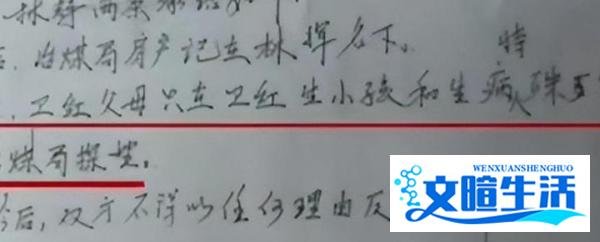 冶煤局房产记在林挥名下。
特
卫红父母只在卫红生小孩和生病人殊
煤局探望。
后,双方不得以任何理由反
WENXUANSHENGHUO
文暄生活